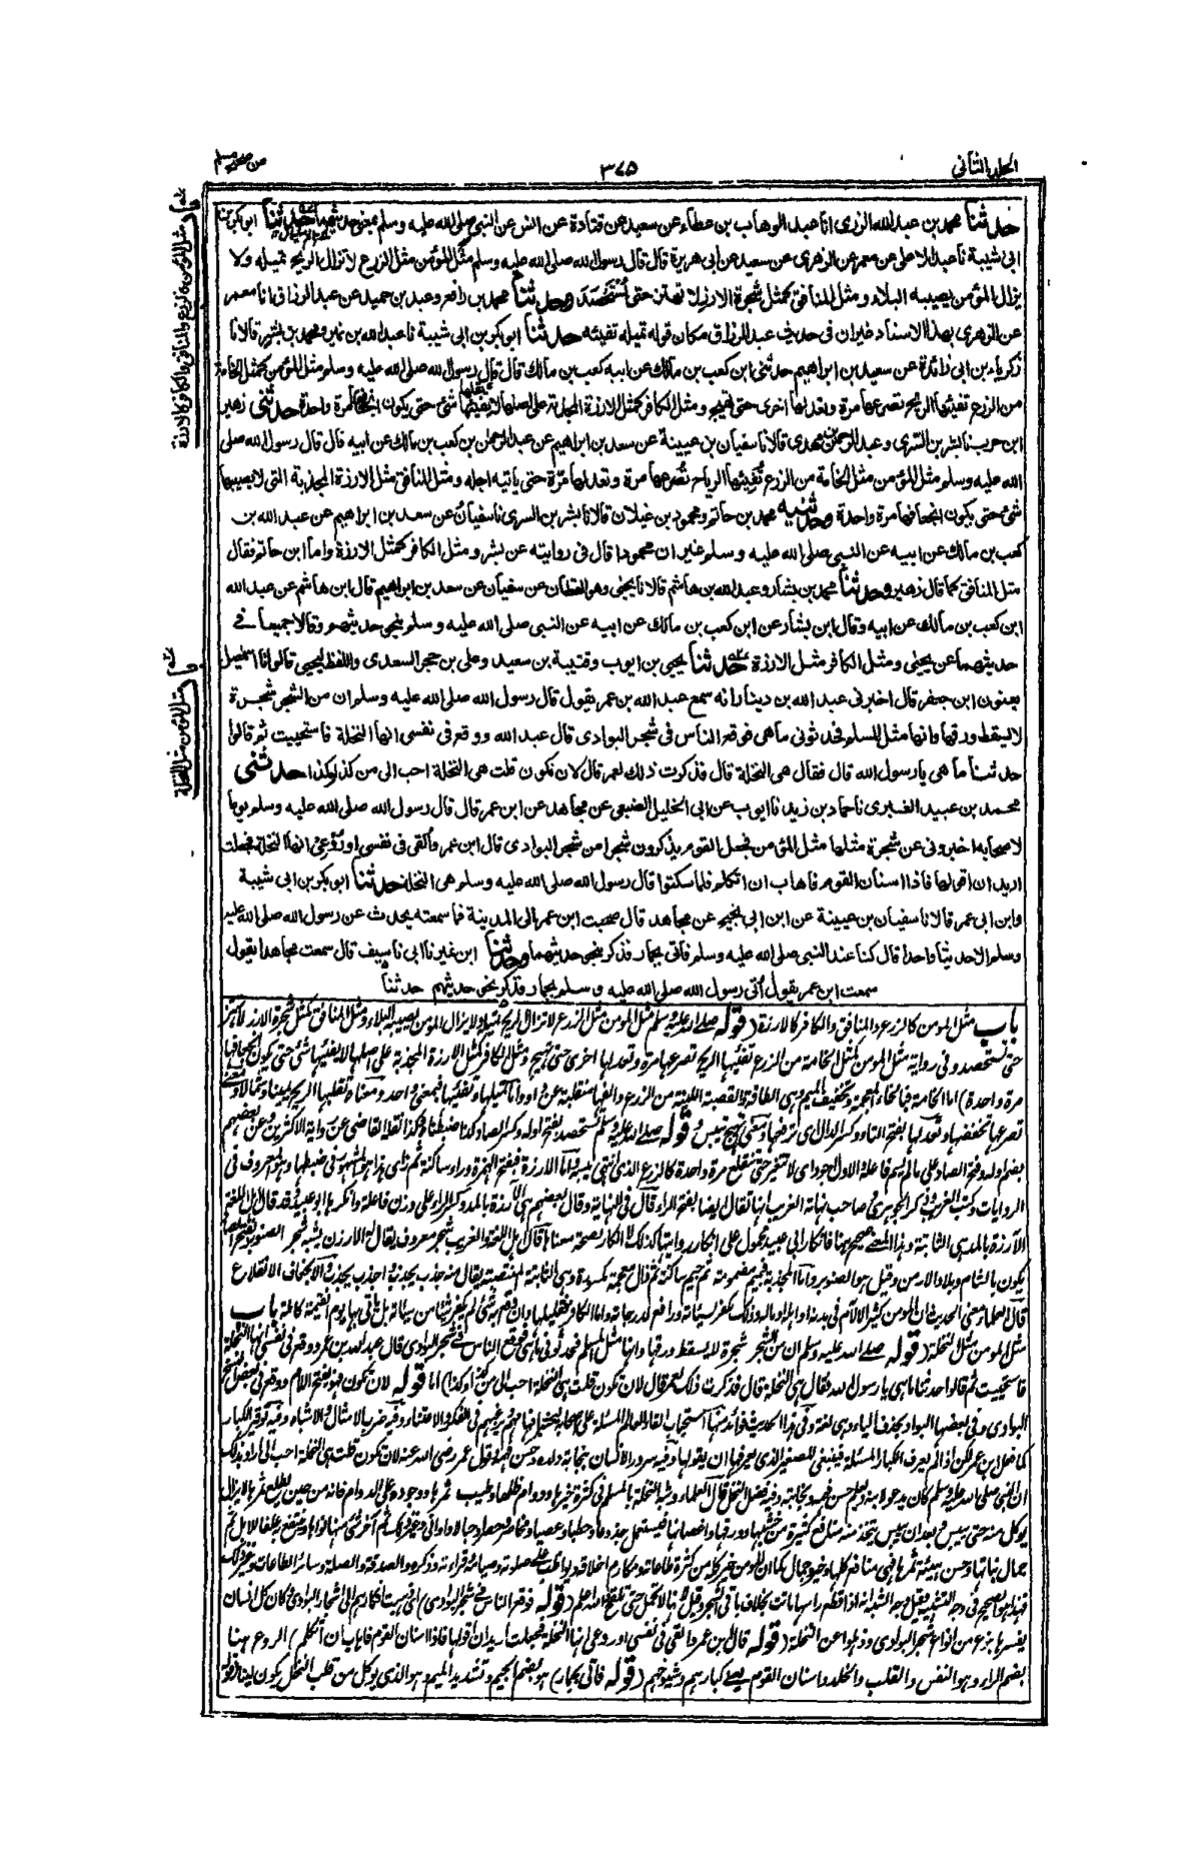 الجلد الثاني
٣٧٥
من صحيح مسلم
حدثنا محمد بن عبد الله الرزى انا عبد الوهاب بن عطاء عن سعيد عن قتادة عن انس عن النبي صلى الله عليه وسلم بمعنى حديثهما حدثنا ابو بكر بن
ابى شيبة نا عبد الاعلى عن معمر عن الزهرى عن سعيد عن ابى هريرة قال قال رسول الله صلى الله عليه وسلم مثل المؤمن مثل الزرع لا تزال الريح تميله ولا
يزال المؤمن يصيبه البلاء ومثل المنافق كمثل شجرة الارز لا تهتز حتى تستحصد وحدثنا محمد بن رافع وعبد بن حميد عن عبد الرزاق انا معمر
عن الزهرى بهذا الاسناد غير ان فى حديث عبد الرزاق مكان قوله تميله تفيئه حدثنا ابو بكر بن ابى شيبة نا عبد الله بن نمير ومحمد بن بشر قالا نا
زكرياء بن ابى زائدة عن سعيد بن ابراهيم حدثنى ابن كعب بن مالك عن ابيه كعب بن مالك قال قال رسول الله صلى الله عليه وسلم مثل المؤمن كمثل الخامة
من الزرع تفيئها الريح تصرعها مرة وتعدلها اخرى حتى تهيج ومثل الكافر كمثل الارزة المجذية على اصلها لا يفيئها شئ حتى يكون انجعافها مرة واحدة حدثنى زهير
ابن حرب نا بشر بن السرى وعبد الرحمن بن مهدى قالا نا سفيان بن عيينة عن سعد بن ابراهيم عن عبد الرحمن بن كعب بن مالك عن ابيه قال قال رسول الله صلى
الله عليه وسلم مثل المؤمن مثل الخامة من الزرع تفيئها الرياح تصرعها مرة وتعدلها مرة حتى ياتيه اجله ومثل المنافق مثل الارزة المجذية التى لا يصيبها
شئ حتى يكون انجعافها مرة واحدة وحدثنيه محمد بن حاتم ومحمود بن غيلان قالا نا بشر بن السرى نا سفيان عن سعد بن ابراهيم عن عبد الله بن
كعب بن مالك عن ابيه عن النبي صلى الله عليه وسلم غير ان محمودا قال فى روايته عن بشر ومثل الكافر كمثل الارزة واما ابن حاتم فقال
مثل المنافق كما قال زهير وحدثنا محمد بن بشار وعبد الله بن هاشم قالا نا يحيى وهو القطان عن سفيان عن سعد بن ابراهيم قال ابن هاشم عن عبد الله
ابن كعب بن مالك عن ابيه وقال ابن بشار عن ابن كعب بن مالك عن ابيه عن النبي صلى الله عليه وسلم بنحو حديثهم وقالا جميعا فى
حديثهما عن يحيى ومثل الكافر مثل الارزة حدثنا يحيى بن ايوب وقتيبة بن سعيد وعلى بن حجر السعدى واللفظ ليحيى قالوا نا اسمعيل
يعنون ابن جعفر قال اخبرنى عبد الله بن دينار انه سمع عبد الله بن عمر يقول قال رسول الله صلى الله عليه وسلم ان من الشجر شجرة
لا يسقط ورقها وانها مثل المسلم فحدثونى ما هى فوقع الناس فى شجر البوادى قال عبد الله ووقع فى نفسى انها النخلة فاستحييت ثم قالوا
حدثنا ما هى يا رسول الله قال فقال هى النخلة قال فذكرت ذلك لعمر قال لان تكون قلت هى النخلة احب الى من كذا وكذا حدثنى
محمد بن عبيد الغبرى نا حماد بن زيد نا ايوب عن ابى الخليل الضبعى عن مجاهد عن ابن عمر قال قال رسول الله صلى الله عليه وسلم يوما
لاصحابه اخبرونى عن شجرة مثلها مثل المؤمن فجعل القوم يذكرون شجرا من شجر البوادى قال ابن عمر والقى فى نفسى او روعى انها النخلة فجعلت
اريد ان اقولها فاذا اسنان القوم فاهاب ان اتكلم فلما سكتوا قال رسول الله صلى الله عليه وسلم هى النخلة حدثنا ابو بكر بن ابى شيبة
وابن ابى عمر قالا نا سفيان بن عيينة عن ابن ابى نجيح عن مجاهد قال صحبت ابن عمر الى المدينة فما سمعته يحدث عن رسول الله صلى الله عليه
وسلم الا حديثا واحدا قال كنا عند النبي صلى الله عليه وسلم فاتى بجمار فذكر بنحو حديثهما وحدثنا ابن نمير نا ابى نا سيف قال سمعت مجاهدا يقول
سمعت ابن عمر يقول اتى رسول الله صلى الله عليه وسلم بجمار فذكر نحو حديثهم حدثنا
باب مثل المومن كالزرع والمنافق والكافر كالارزة (قوله صلى الله عليه وسلم مثل المومن مثل الزرع لا تزال الريح تميله ولا يزال المومن يصيبه البلاء ومثل المنافق كمثل شجرة الارز لا تهتز
حتى تستحصد وفى رواية مثل المومن كمثل الخامة من الزرع تفيئها الريح تصرعها مرة وتعدلها اخرى حتى تهيج ومثل الكافر كمثل الارزة المجذية على اصلها لا يفيئها شئ حتى يكون انجعافها
مرة واحدة) اما الخامة فبالخاء المعجمة وتخفيف الميم وهى الطاقة والقصبة اللينة من الزرع والفها منقلبة عن واو واما تميلها وتفيئها فبمعنى واحد ومعناه تقلبها الريح يمينا وشمالا ومعنى
تصرعها تخفضها وتعدلها بفتح التاء وكسر الدال اى ترفعها ومعنى تهيج تيبس وقوله صلى الله عليه وسلم تستحصد بفتح اوله وكسر الصاد كذا ضبطناه وكذا نقله القاضى عن رواية الاكثرين وعن بعضهم
بضم اوله وفتح الصاد على ما لم يسم فاعله والاول اجود اى لا تتغير حتى تنقلع مرة واحدة كالزرع الذى انتهى يبسه واما الارزة فبفتح الهمزة وراء ساكنة ثم زاى هذا هو المشهور فى ضبطها وهو المعروف فى
الروايات وكتب الغريب وذكر الجوهرى وصاحب نهاية الغريب انها تقال ايضا بفتح الراء قال فى النهاية وقال بعضهم هى الآرزة بالمد وكسر الراء على وزن فاعلة وانكرها ابو عبيد وقد قال اهل اللغة
الآرزة بالمد هى الثابتة وهذا المعنى صحيح هنا فانكار ابى عبيد محمول على انكار روايتها كذلك لا انكار لصحة معناها قال اهل اللغة والغريب شجر معروف يقال له الارزن يشبه شجر الصنوبر
يكون بالشام وبلاد الارمن وقيل هو الصنوبر واما المجذية فبميم مضمومة ثم جيم ساكنة ثم ذال معجمة مكسورة وهى الثابتة المنتصبة يقال منه جذب يجذب واجذب يجذب والانجعاف الانقلاع
قال العلماء معنى الحديث ان المومن كثير الآلام فى بدنه او اهله او ماله وذلك مكفر لسيئاته ورافع لدرجاته واما الكافر فقليلها وان وقع به شئ لم يكفر شيئا من سيئاته بل ياتى بها يوم القيمة كاملة باب
مثل المومن مثل النخلة (قوله صلى الله عليه وسلم ان من الشجر شجرة لا يسقط ورقها وانها مثل المسلم فحدثونى ما هى فوقع الناس فى شجر البوادى قال عبد الله بن عمر ووقع فى نفسى انها النخلة
فاستحييت ثم قالوا حدثنا ما هى يا رسول الله فقال هى النخلة قال فذكرت ذلك لعمر قال لان تكون قلت هى النخلة احب الى من كذا وكذا) اما قوله لان تكون فهو بفتح اللام ووقع فى بعض النسخ
البوادى وفى بعضها البواد بحذف الياء وهى لغة وفى هذا الحديث فوائد منها استحباب القاء العالم المسئلة على اصحابه ليختبر افهامهم ويرغبهم فى الفكر والاعتناء وفيه ضرب الامثال والاشباه وفيه توقير الكبار
كما فعل ابن عمر لكن اذا لم يعرف الكبار المسئلة فينبغى للصغير الذى يعرفها ان يقولها وفيه سرور الانسان بنجابة ولده وحسن فهمه وقول عمر رضى الله عنه لان تكون قلت هى النخلة احب الى اراد بذلك
ان النبى صلى الله عليه وسلم كان يدعو لابنه ويعلم حسن فهمه ونجابته وفيه فضل النخل قال العلماء وشبه النخلة بالمسلم فى كثرة خيرها ودوام ظلها وطيب ثمرها ووجوده على الدوام فانه من حين يطلع ثمرها لا يزال
يوكل منه حتى ييبس وبعد ان ييبس يتخذ منه منافع كثيرة من خشبها وورقها واغصانها فيستعمل جذوعا وحطبا وعصيا ومخاصر وحصرا وحبالا واوانى وغير ذلك ثم آخر شئ منها نواها وينتفع به علفا للابل ثم
جمال نباتها وحسن هيئة ثمرها فهى منافع كلها وخير وجمال كما ان المومن خير كله من كثرة طاعاته ومكارم اخلاقه ويواظب على صلوته وصيامه وقراءته وذكره والصدقة والصلة وسائر الطاعات وغير ذلك
فهذا هو الصحيح فى وجه التشبيه وقيل وجه الشبه انه اذا قطع راسها ماتت بخلاف باقى الشجر وقيل لانها لا تحمل حتى تلقح والله اعلم (قوله فوقع الناس فى شجر البوادى) اى ذهبت افكارهم الى اشجار البوادى وكان كل انسان
يفسرها بنوع من انواع شجر البوادى وذهلوا عن النخلة (قوله قال ابن عمر والقى فى نفسى او روعى انها النخلة فجعلت اريد ان اقولها فاذا اسنان القوم فاهاب ان اتكلم) الروع هنا
بضم الراء وهو النفس والقلب والخلد واسنان القوم يعنى كبارهم وشيوخهم (قوله فاتى بجمار) هو بضم الجيم وتشديد الميم وهو الذى يوكل من قلب النخل يكون لينا
باب مثل المؤمن كالزرع والمنافق والكافر كالارزة
باب مثل المؤمن مثل النخلة